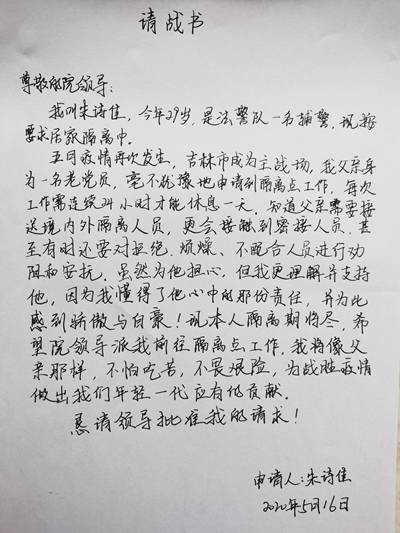 请战书
尊敬的院领导:
我叫朱诗佳,今年29岁,是法警队一名辅警,现按
要求居家隔离中。
五月疫情再次发生,吉林市成为主战场,我父亲身
为一名老党员,毫不犹豫地申请到隔离点工作,每次
工作需连续24小时才能休息一天。知道父亲需要接
送境内外隔离人员,更会接触到密接人员,甚
至有时还要对拒绝、烦燥、不配合人员进行劝
阻和安抚。虽然为他担心,但我更理解并支持
他,因为我懂得了他心中的那份责任,并为此
感到骄傲与自豪!现本人隔离期将尽,希
望院领导派我前往隔离点工作,我将像父
亲那样,不怕吃苦,不畏艰险,为战胜疫情
做出我们年轻一代应有的贡献。
恳请领导批准我的请求!
申请人:朱诗佳
2020年5月16日